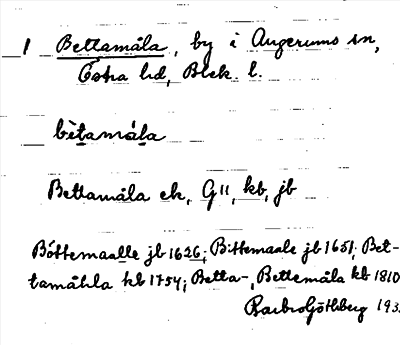 1 Bettamåla, by i Augerums sn,
Östra hd, Blek. l.
bètamǻla
Bettamåla ek, G11, kb, jb
Böttemaalle jb 1626; Bittemaale jb 1651; Bet-
tamåhla kb 1754; Betta-, Bettemåla kb 1810
Göthberg 193